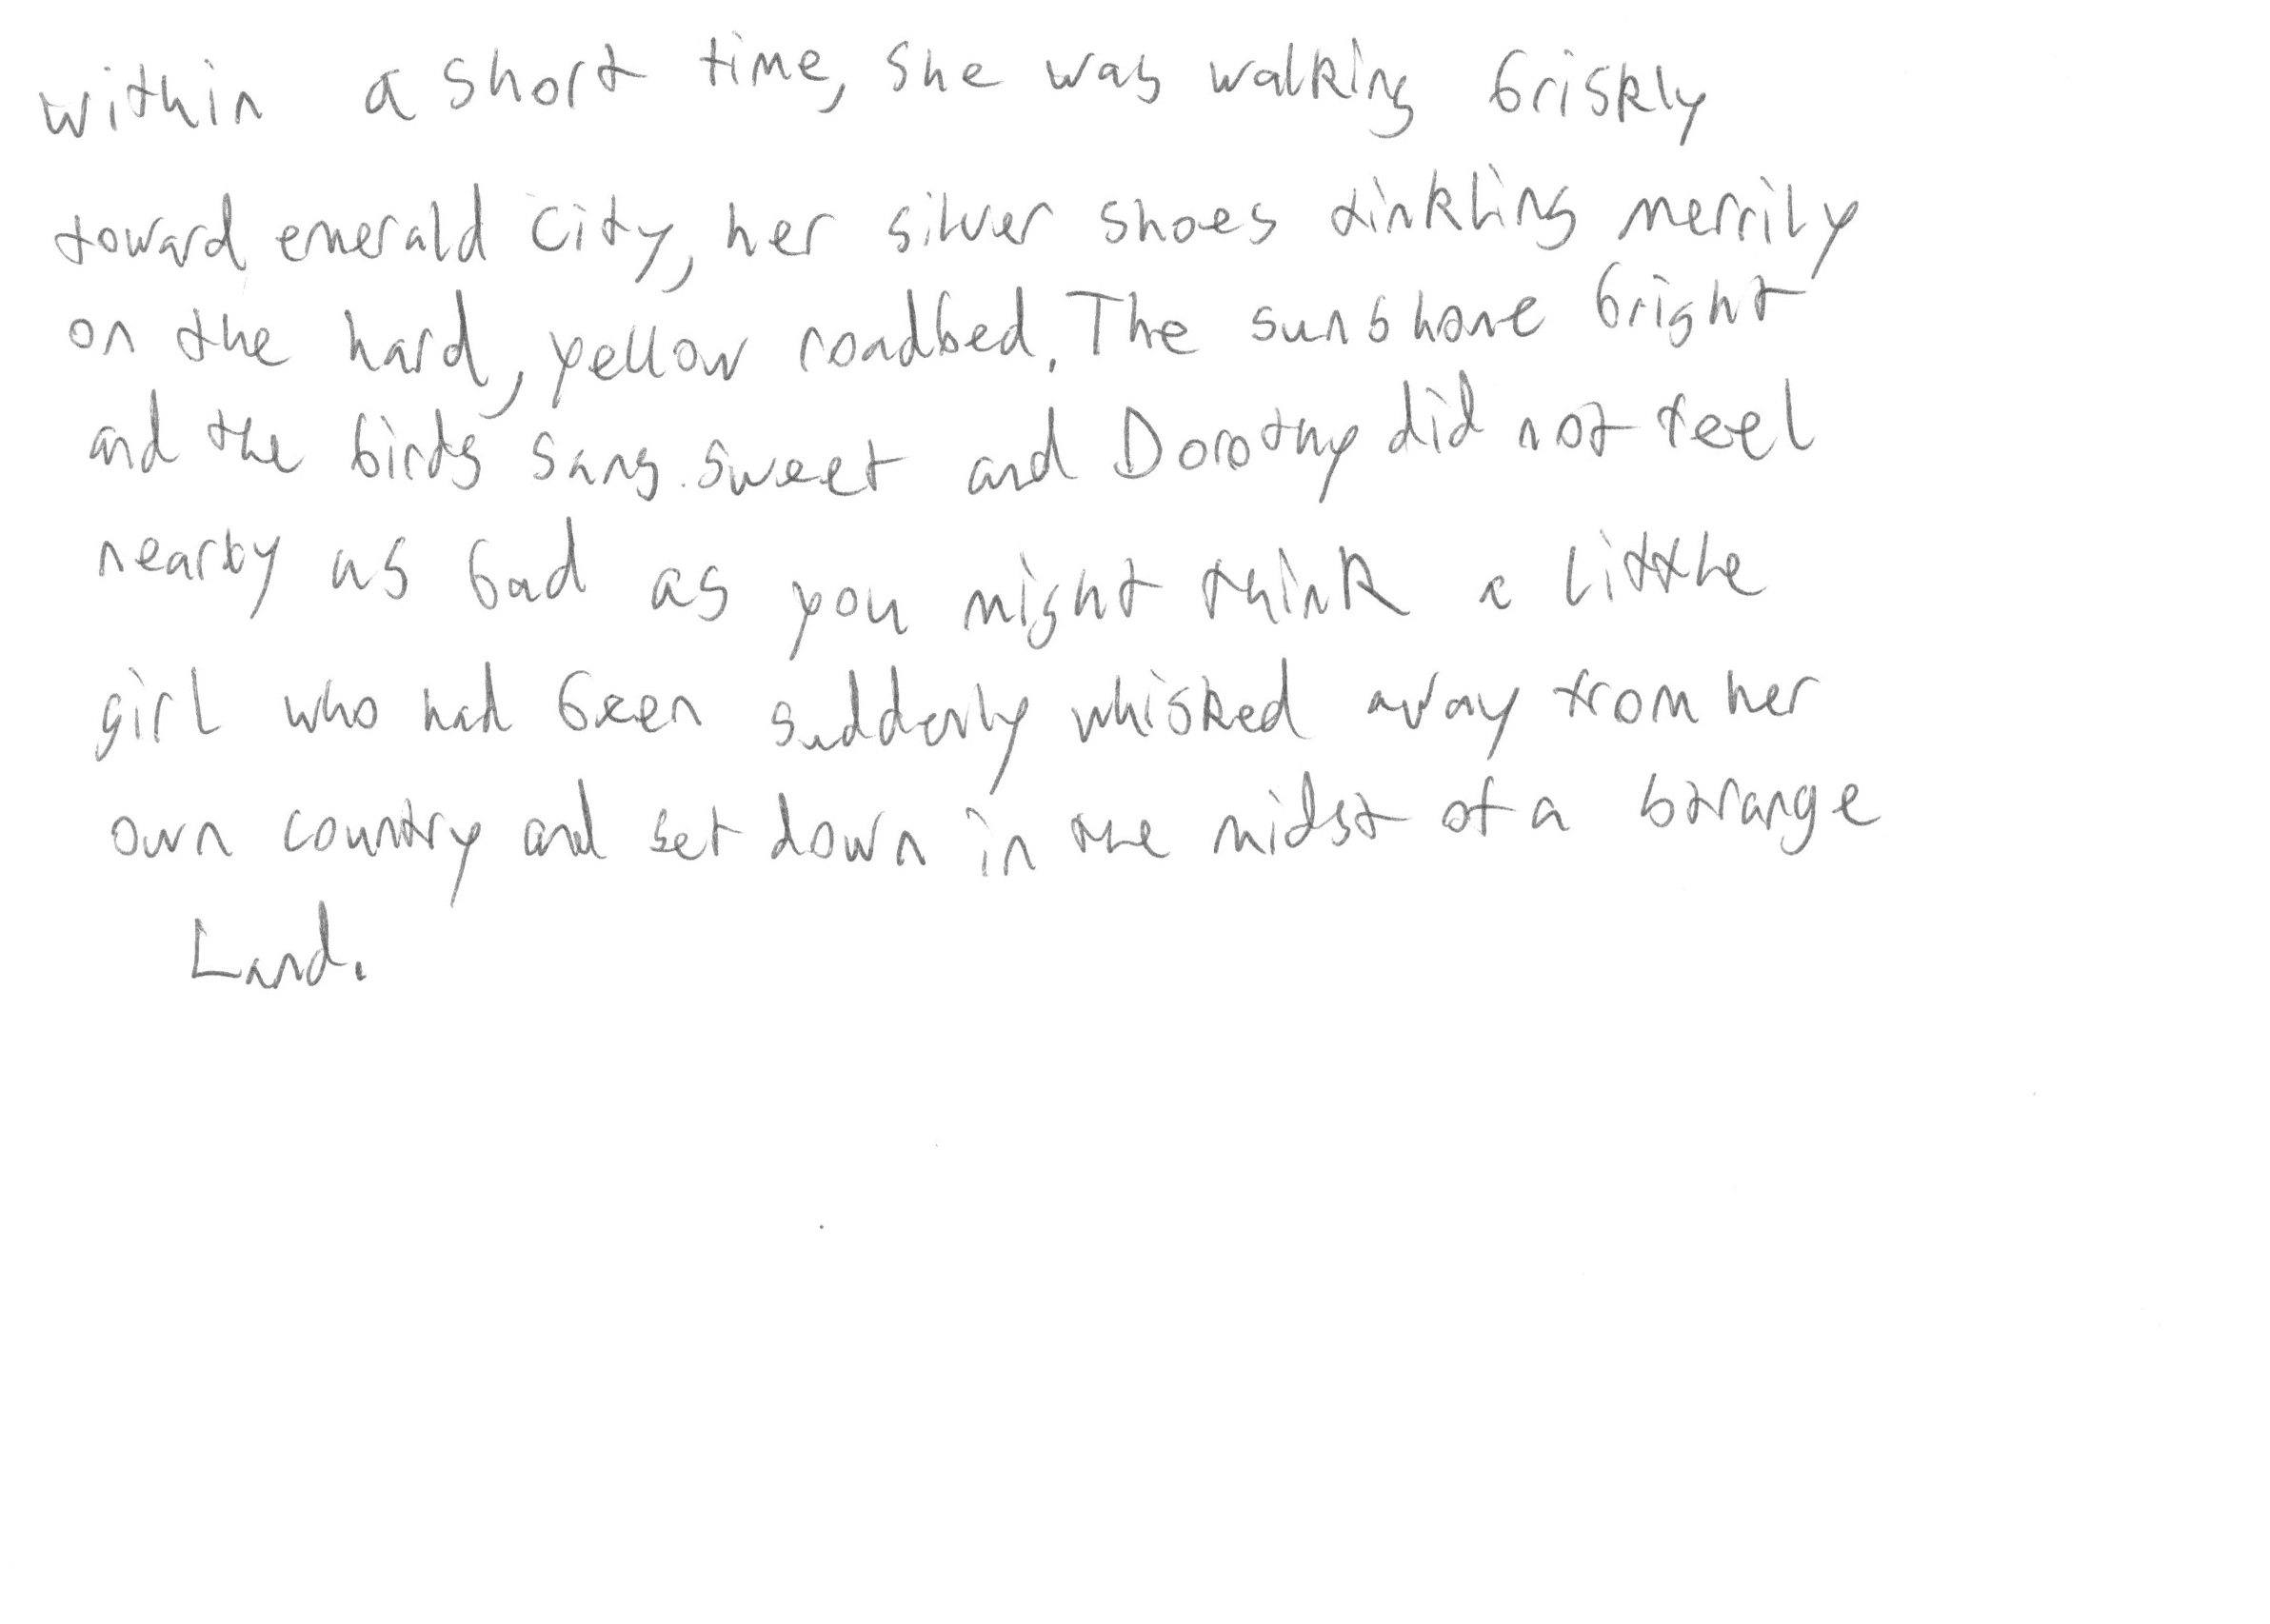 within a short time, she was walking briskly
toward emerald city, her silver shoes tinkling merrily
on the hard, yellow roadbed. The sun shone bright
and the birds sang sweet and Dorothy did not feel
nearby as bad as you might think a little
girl who had been suddenly whisked away from her
own country and set down in the midst of a strange
Land.